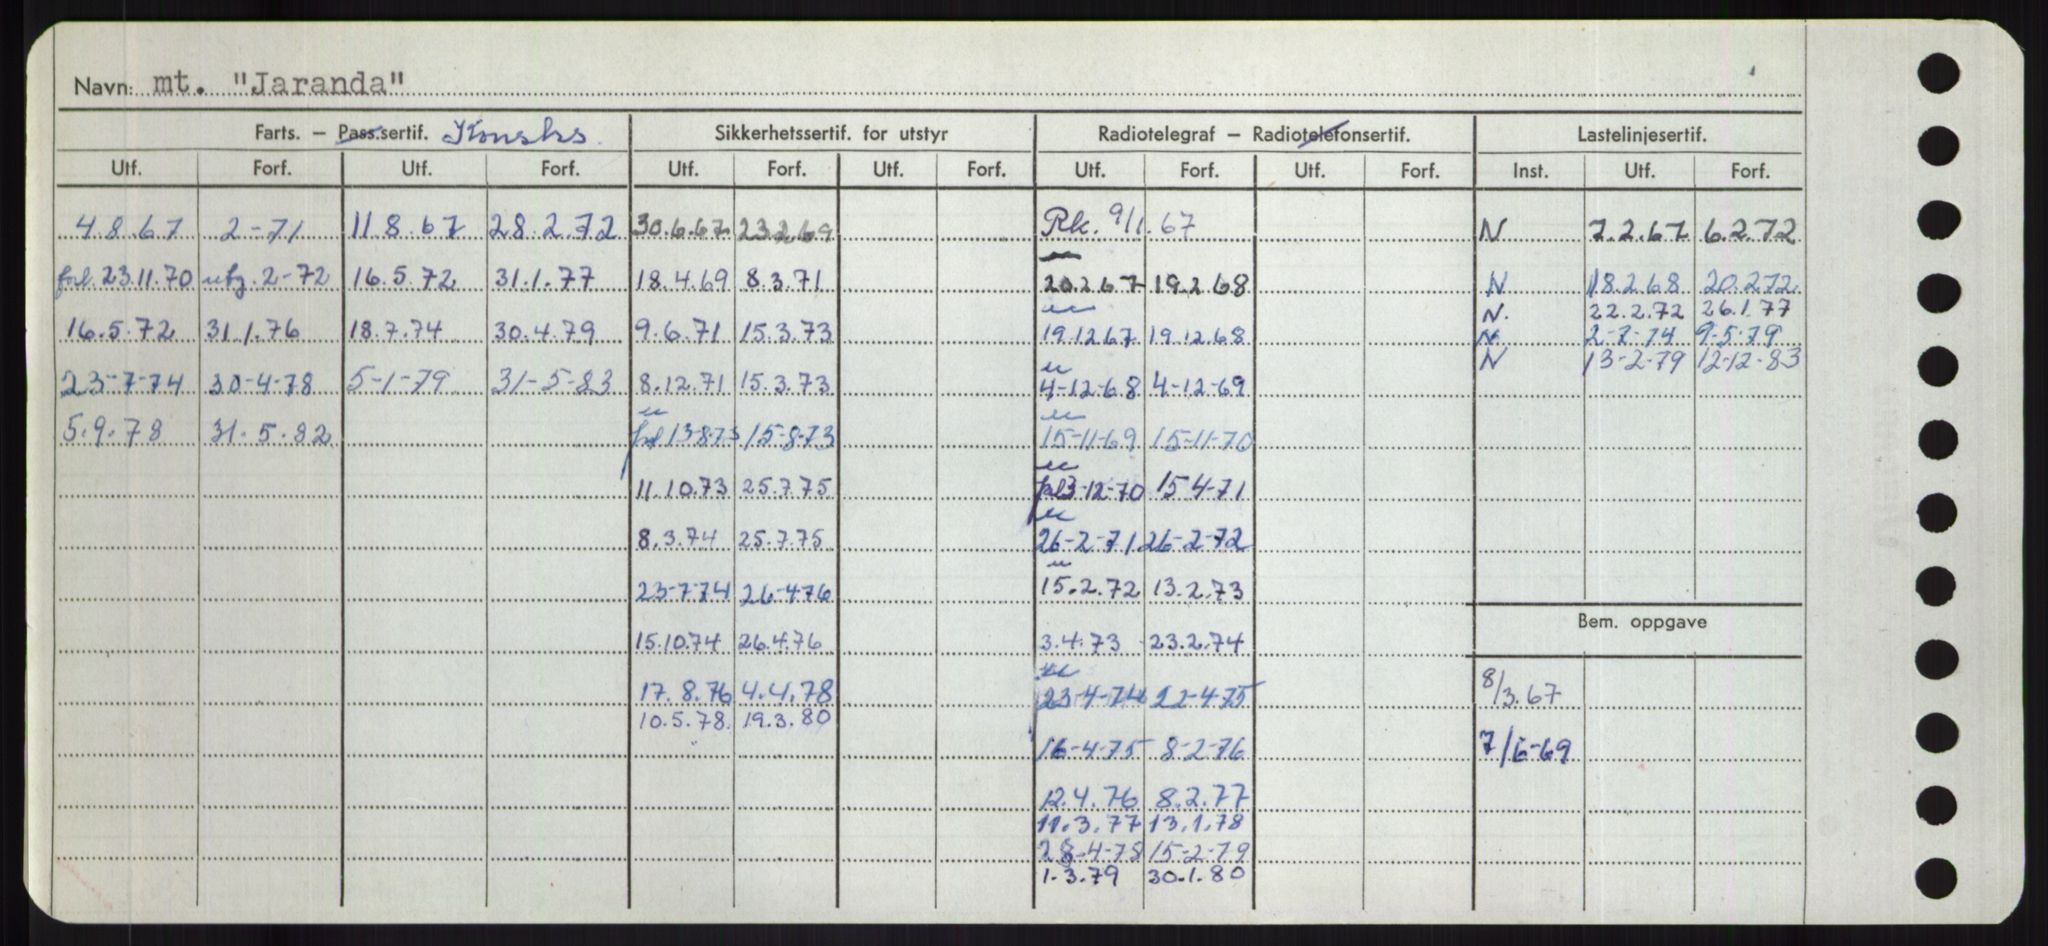 Navn: mt. "Jaranda"
Farts. – Pass.sertif. Konsks. Sikkerhetssertif. for utstyr Radiotelegraf – Radiotelefonsertif. Lastelinjesertif.
Utf. Forf. Utf. Forf. Utf. Forf. Utf. Forf. Utf. Forf. Utf. Forf. Inst. Utf. Forf.
4.8.67 2-71 11.8.67 28.2.72 30.6.67 23.2.69 Rk. 9/1.67 N 7.2.67 6.2.72
fol. 23.11.70 utg. 2-72 16.5.72 31.1.77 18.4.69 8.3.71 20.2.67 19.2.68 N 18.2.68 20.2.72
N. 22.2.72 26.1.77
16.5.72 31.1.76 18.7.74 30.4.79 9.6.71 15.3.73 19.12.67 19.12.68 N 2-7-74 9-5-79
N 13-2-79 12-12-83
23-7-74 30-4-78 5-1-79 31-5-83 8.12.71 15.3.73 4-12-68 4-12-69
5.9.78 31.5.82 fol 13-8-73 15-8-73 15-11-69 15-11-70
11.10.73 25.7.75 fol 3-12-70 15-4-71
8.3.74 25.7.75 26-2-71 26-2-72
23-7-74 26-4-76 15.2.72 13.2.73
Bem. oppgave
15.10.74 26.4.76 3.4.73 23.2.74
17.8.76 4.4.78 23-4-74 22-4-75 8/3.67
10.5.78. 19.3.80
16-4-75 8-2-76 7/6-69
12.4.76 8.2.77
11.3.77 13.1.78
28-4-78 15-2-79
1.3.79 30.1.80